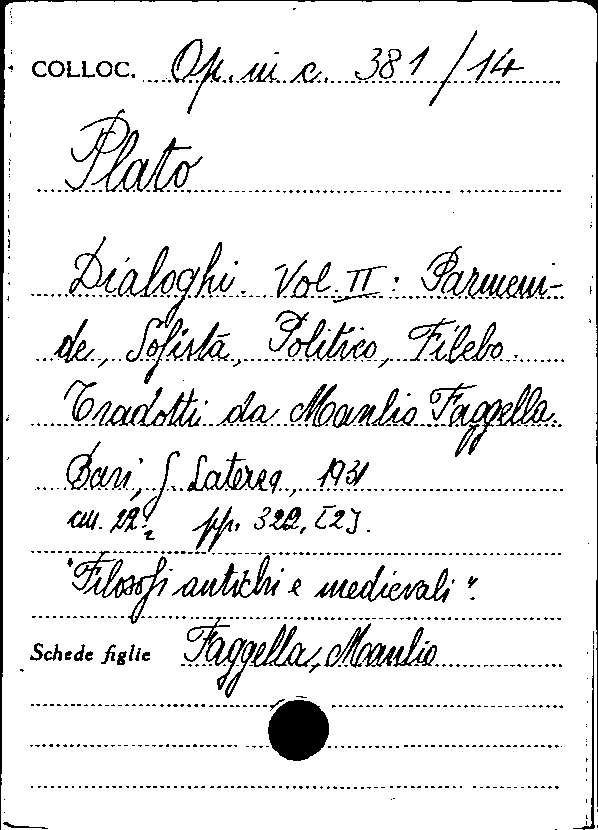 COLLOC. Op. in c. 381/14
Plato
Dialoghi. Vol. II: Parmeni-
de, Sofista, Politico, Filebo.
Tradotti da Manlio Faggella.
Bari, G. Laterza, 1931
cm. 22½ pp. 322, [2].
"Filosofi antichi e medievali".
Schede figlie Faggella, Manlio